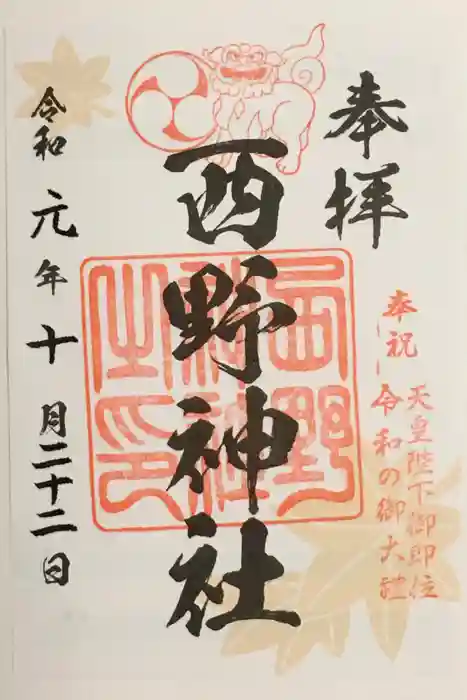 奉拝
奉祝 天皇陛下御即位
令和の御大禮
西野神社
西野神社之印
令和元年十月二十二日